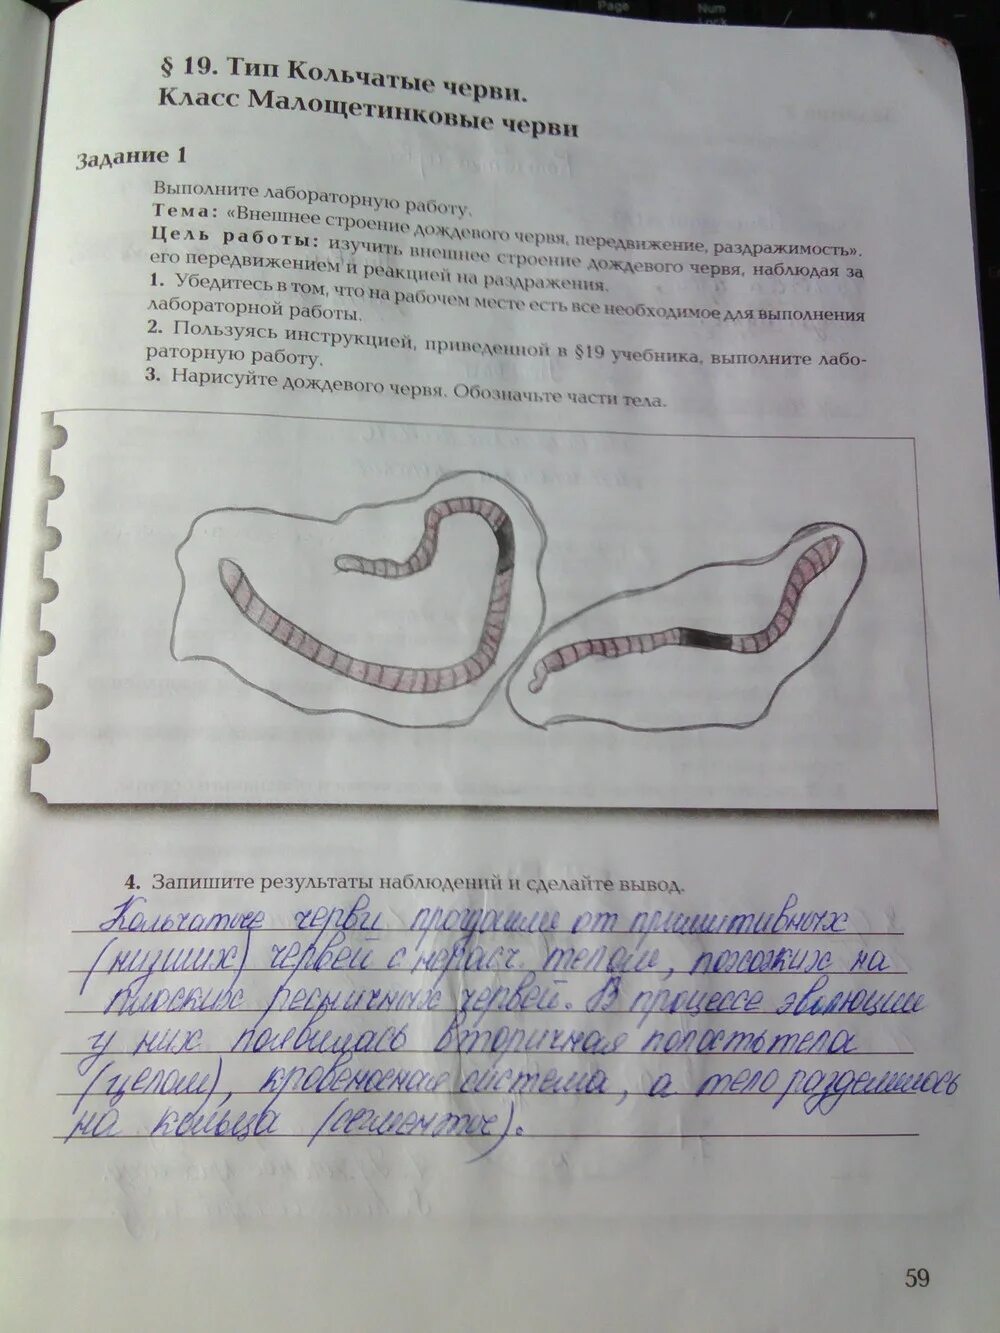 Page
Num
Lock
§ 19. Тип Кольчатые черви.
Класс Малощетинковые черви
Задание 1
Выполните лабораторную работу.
Тема: «Внешнее строение дождевого червя, передвижение, раздражимость».
Цель работы: изучить внешнее строение дождевого червя, наблюдая за
его передвижением и реакцией на раздражения.
1. Убедитесь в том, что на рабочем месте есть все необходимое для выполнения
лабораторной работы.
2. Пользуясь инструкцией, приведенной в §19 учебника, выполните лабо-
раторную работу.
3. Нарисуйте дождевого червя. Обозначьте части тела.
4. Запишите результаты наблюдений и сделайте вывод.
Кольчатые черви произошли от примитивных
(низших) червей с нерасч. телом, похожих на
плоских ресничных червей. В процессе эволюции
у них появилась вторичная полость тела
(целом), кровеносная система, а тело разделилось
на кольца (сегменты).
59